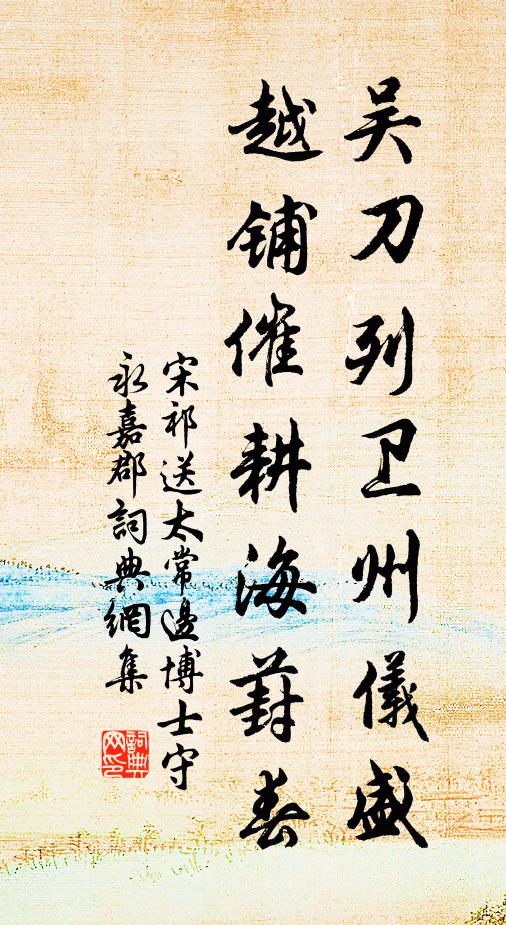 吴刀列卫州儀盛
越鋪催耕海葑春
宋祁送太常邊博士守
永嘉郡詞典網集
詞典
网印